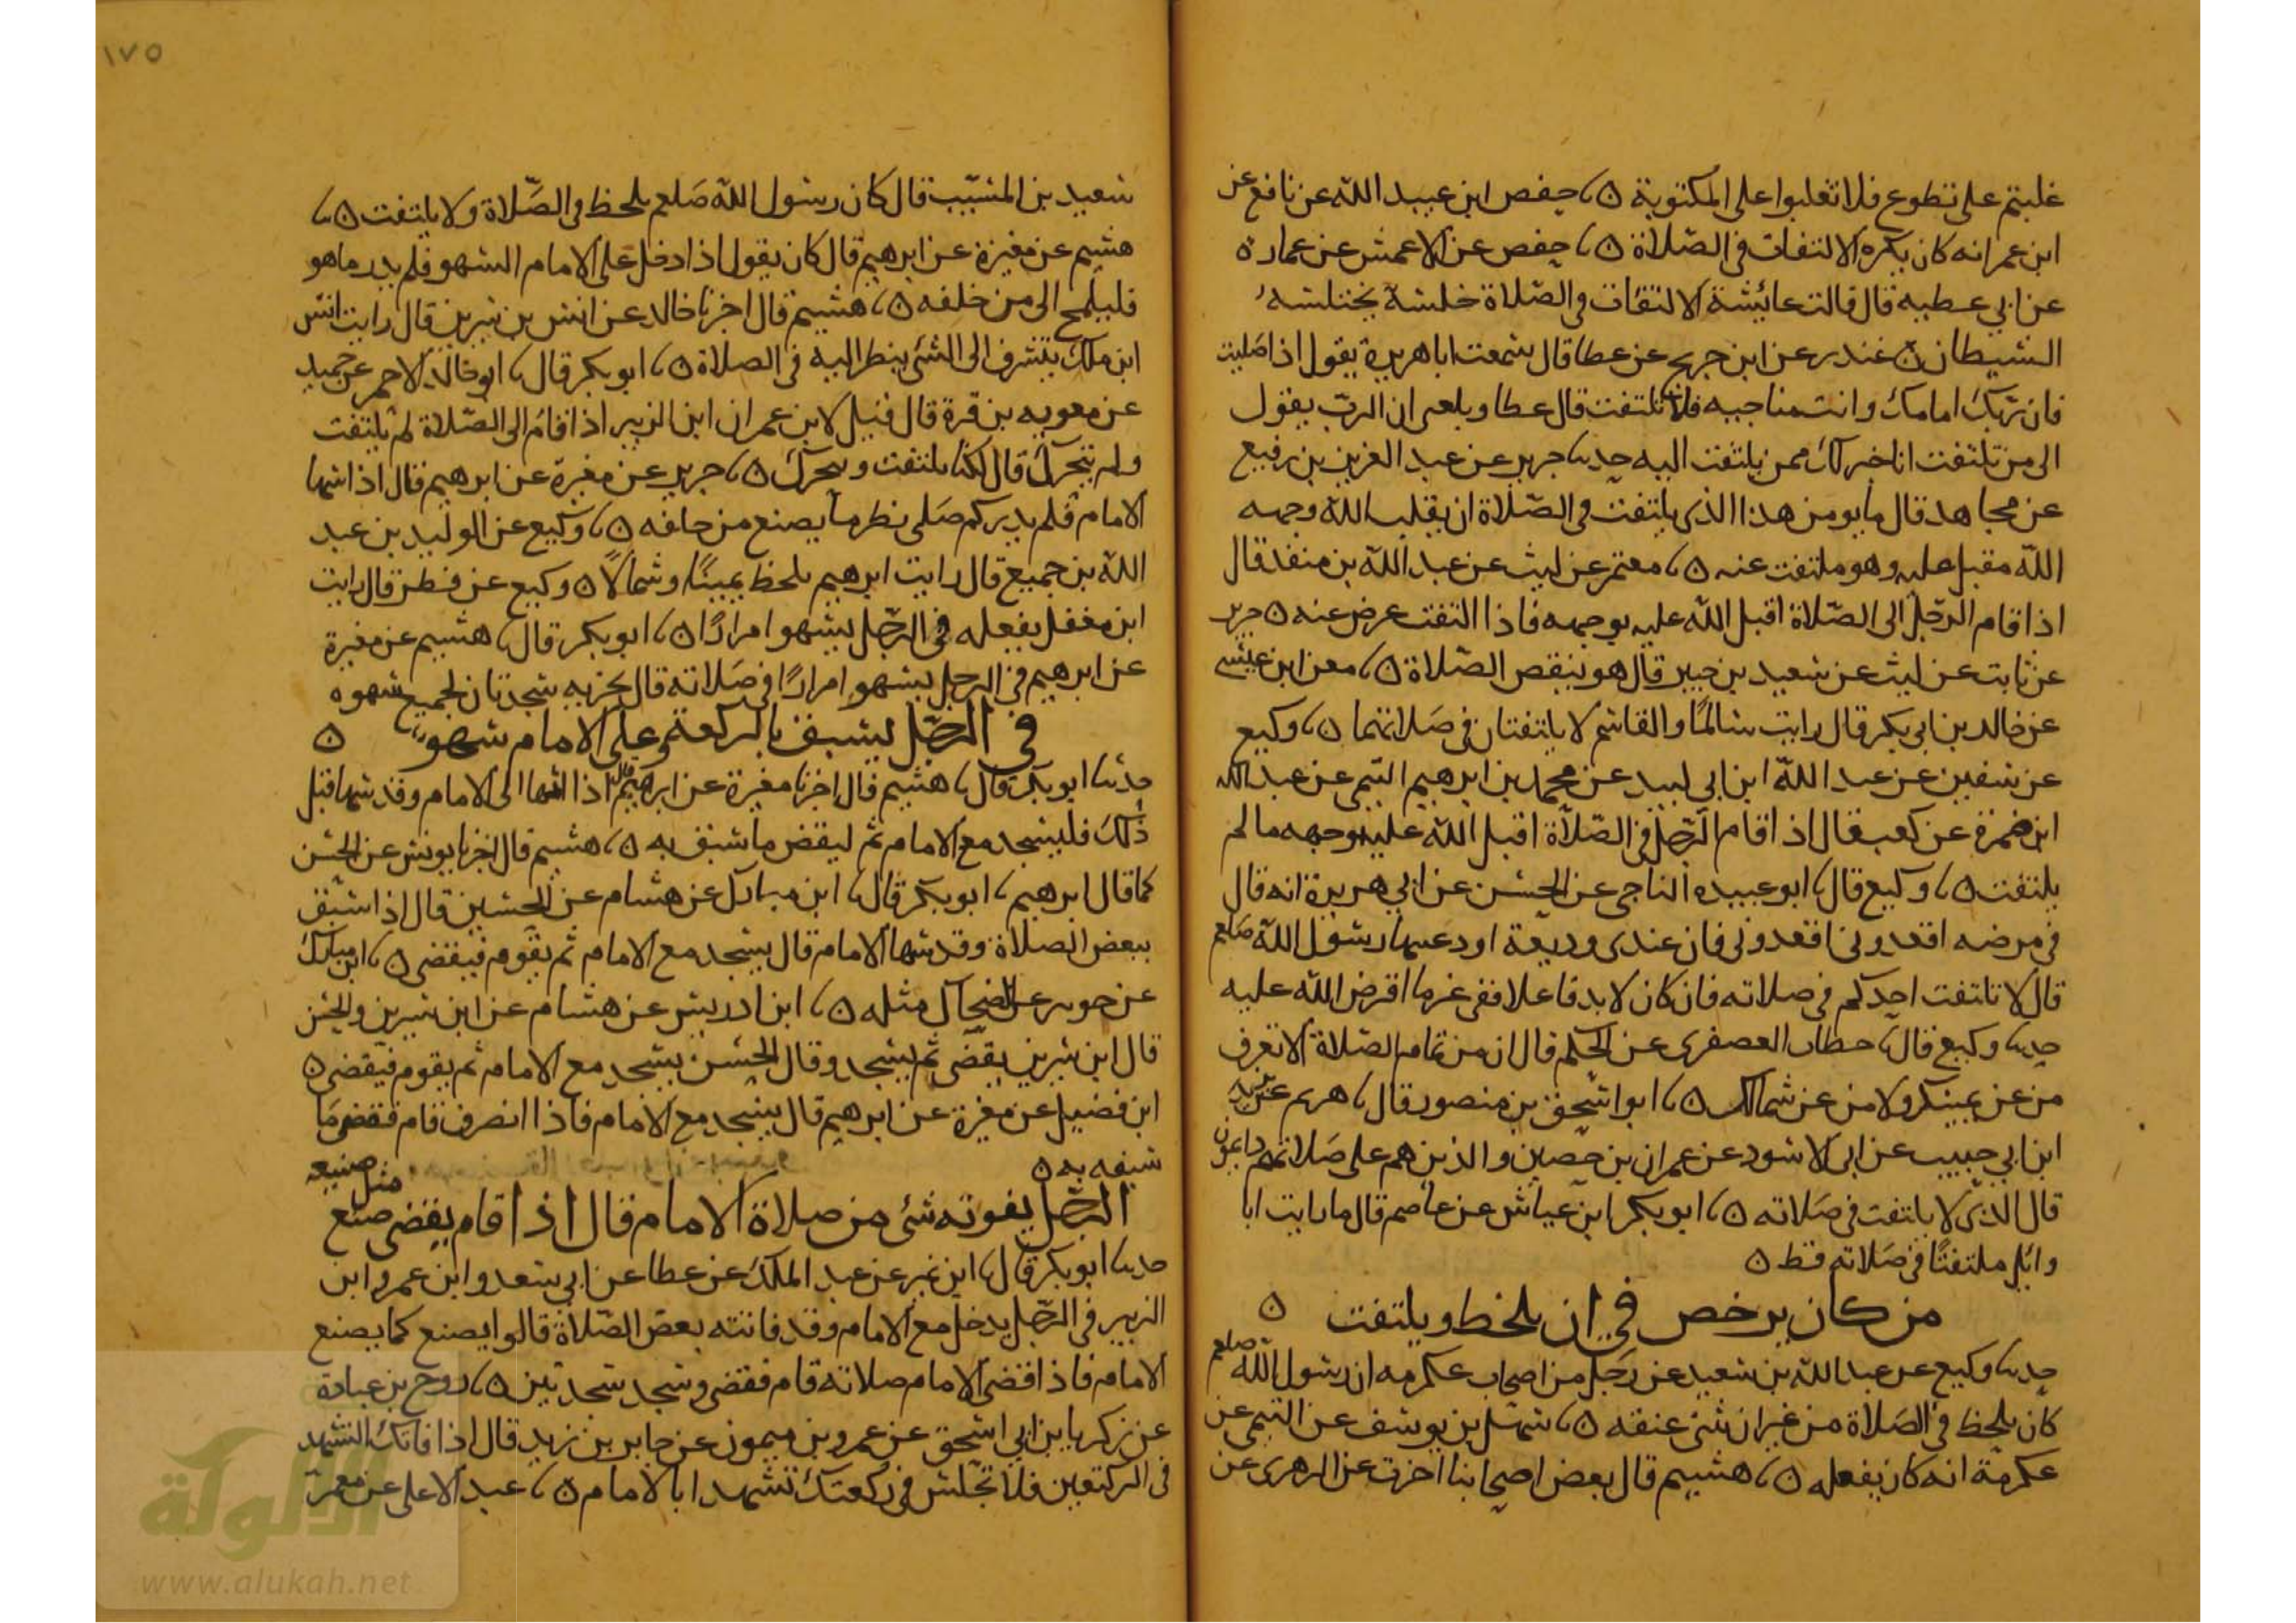 غلبتم على تطوع فلا تغلبوا على المكتوبة ٥ حفص ابن عبيد الله عن نافع عن
ابن عمر انه كان يكره الالتفات في الصلاة ٥ حفص عن الاعمش عن عمارة
عن ابي عطيه قال قالت عائشة الالتفات في الصلاة خلسة يختلسه
الشيطان ٥ غندر عن ابن جريج عن عطا قال سمعت ابا هريرة يقول اذا صليت
فان ربك امامك وانت مناجيه فلا تلتفت قال عطا وبلغنى ان الرب يقول
الى من تلتفت انا خير لك ممن يلتفت اليه حدثنا جرير عن عبد العزيز بن رفيع
عن مجاهد قال ما يومن هذا الذى يلتفت في الصلاة ان يقلب الله وجهه
الله مقبل عليه وهو ملتفت عنه ٥ معتمر عن ليث عن عبد الله بن منقذ قال
اذا قام الرجل الى الصلاة اقبل الله عليه بوجهه فاذا التفت عرض عنه ٥ جرير
عن ثابت عن ليث عن سعيد بن جبير قال هو ينقص الصلاة ٥ معن ابن عيسى
عن خالد بن ابي بكر قال رايت سالما والقاسم لا يلتفتان في صلاتهما ٥ وكيع
عن سفين عن عبد الله ابن ابي لبيد عن محمد بن ابرهيم التيمي عن عبد الله
ابن ضمرة عن كعب قال اذ اقام الرجل في الصلاة اقبل الله عليه وجهه ما لم
يلتفت ٥ وكيع قال ابو عبيده الناجي عن الحسن عن ابي هريرة انه قال
في مرضه اقعدوني اقعدوني فان عندى وديعة اودعنيها رسول الله صلعم
قال لا تلتفت احدكم في صلاته فان كان لا بد فاعلا ففي غير ما افترض الله عليه
حدثنا وكيع قال حطاب العصفرى عن الحكم قال ان من تمام الصلاة الا تعرف
من عن يمينك ولا من عن شمالك ٥ ابو اسحق بن منصور قال هريم عن
ابن ابي حبيب عن ابي الاسود عن عمران بن حصين والذين هم على صلاتهم دايمون
قال الذي لا يلتفت في صلاته ٥ ابو بكر ابن عياش عن عاصم قال ما رايت ابا
وائل ملتفتا في صلاته قط ٥
من كان يرخص في ان يلحظ ويلتفت ٥
حدثنا وكيع عن عبد الله بن سعيد عن رجل من اصحاب عكرمه ان رسول الله صلعم
كان يلحظ في الصلاة من غير ان يثنى عنقه ٥ سهل بن يوسف عن التيمي عن
عكرمة انه كان يفعله ٥ هشيم قال بعض اصحابنا اخرت عن الزهرى عن
١٧٥
سعيد بن المسيب قال كان رسول الله صلعم يلحظ في الصلاة ولا يلتفت ٥
هشيم عن مغيرة عن ابرهيم قال كان يقول اذا دخل على الامام السهو فلم يدر ما هو
فليلمح الى من خلفه ٥ هشيم قال اخبرنا خالد عن انس بن سيرين قال رايت انس
ابن ملك يتشرف الى الشئ ينظر اليه في الصلاة ٥ ابو بكر قال ابو خالد الاحمر عن حميد
عن معويه بن قرة قال قيل لابن عمر ان ابن الزبير اذا قام الى الصلاة لم يلتفت
ولم يتحرك قال لكنا نلتفت ونتحرك ٥ جرير عن مغيرة عن ابرهيم قال اذا سها
الامام فلم يدر كم صلى نظر ما يصنع من خلفه ٥ وكيع عن الوليد بن عبد
الله بن جميع قال رايت ابرهيم يلحظ يمينا وشمالا ٥ وكيع عن فطر قال رايت
ابن مغفل يفعله في الرجل يسهوا مرارا ٥ ابو بكر قال هشيم عن مغيرة
عن ابرهيم في الرجل يسهو امرارا في صلاته قال يجزيه سجدتان لجميع سهوه
في الرجل يسبق بالركعة وعلى الامام سهو ٥
حدثنا ابو بكر قال هشيم قال اخبرنا مغيرة عن ابرهيم قال اذا انتها الى الامام وقد سها قبل
ذلك فليسجد مع الامام ثم ليقض ما سبق به ٥ هشيم قال اخبرنا يونس عن الحسن
كما قال ابرهيم ابو بكر قال ابن مبارك عن هشام عن الحسين قال اذا سبق
ببعض الصلاة وقد سها الامام قال يسجد مع الامام ثم يقوم فيقضى ٥ ابن مبارك
عن جويبر عن الضحاك مثله ٥ ابن ادريس عن هشام عن ابن سيرين والحسن
قال ابن سيرين يقضى ثم يسجد وقال الحسن يسجد مع الامام ثم يقوم فيقضى ٥
ابن فضيل عن مغيرة عن ابرهيم قال يسجد مع الامام فاذا انصرف قام فقضى ما
سبقه به ٥
الرجل يفوته شئ من صلاة الامام قال اذا قام يقضى صنع مثل صنيعه
حدثنا ابو بكر قال ابن نمير عن عبد الملك عن عطا عن ابي سعد وابن عمر وابن
الزبير في الرجل يدخل مع الامام وقد فاتته بعض الصلاة قالوا يصنع كما يصنع
الامام فاذا قضى الامام صلاته قام فقضى وسجد سجدتين ٥ روح بن عبادة
عن زكريا بن ابي اسحق عن عمرو بن ميمون عن جابر بن زيد قال اذا فاتك التشهد
في الركعتين فلا تجلس في ركعتك تشهدا بالامام ٥ عبد الاعلى عن معمر
الألوكة
www.alukah.net